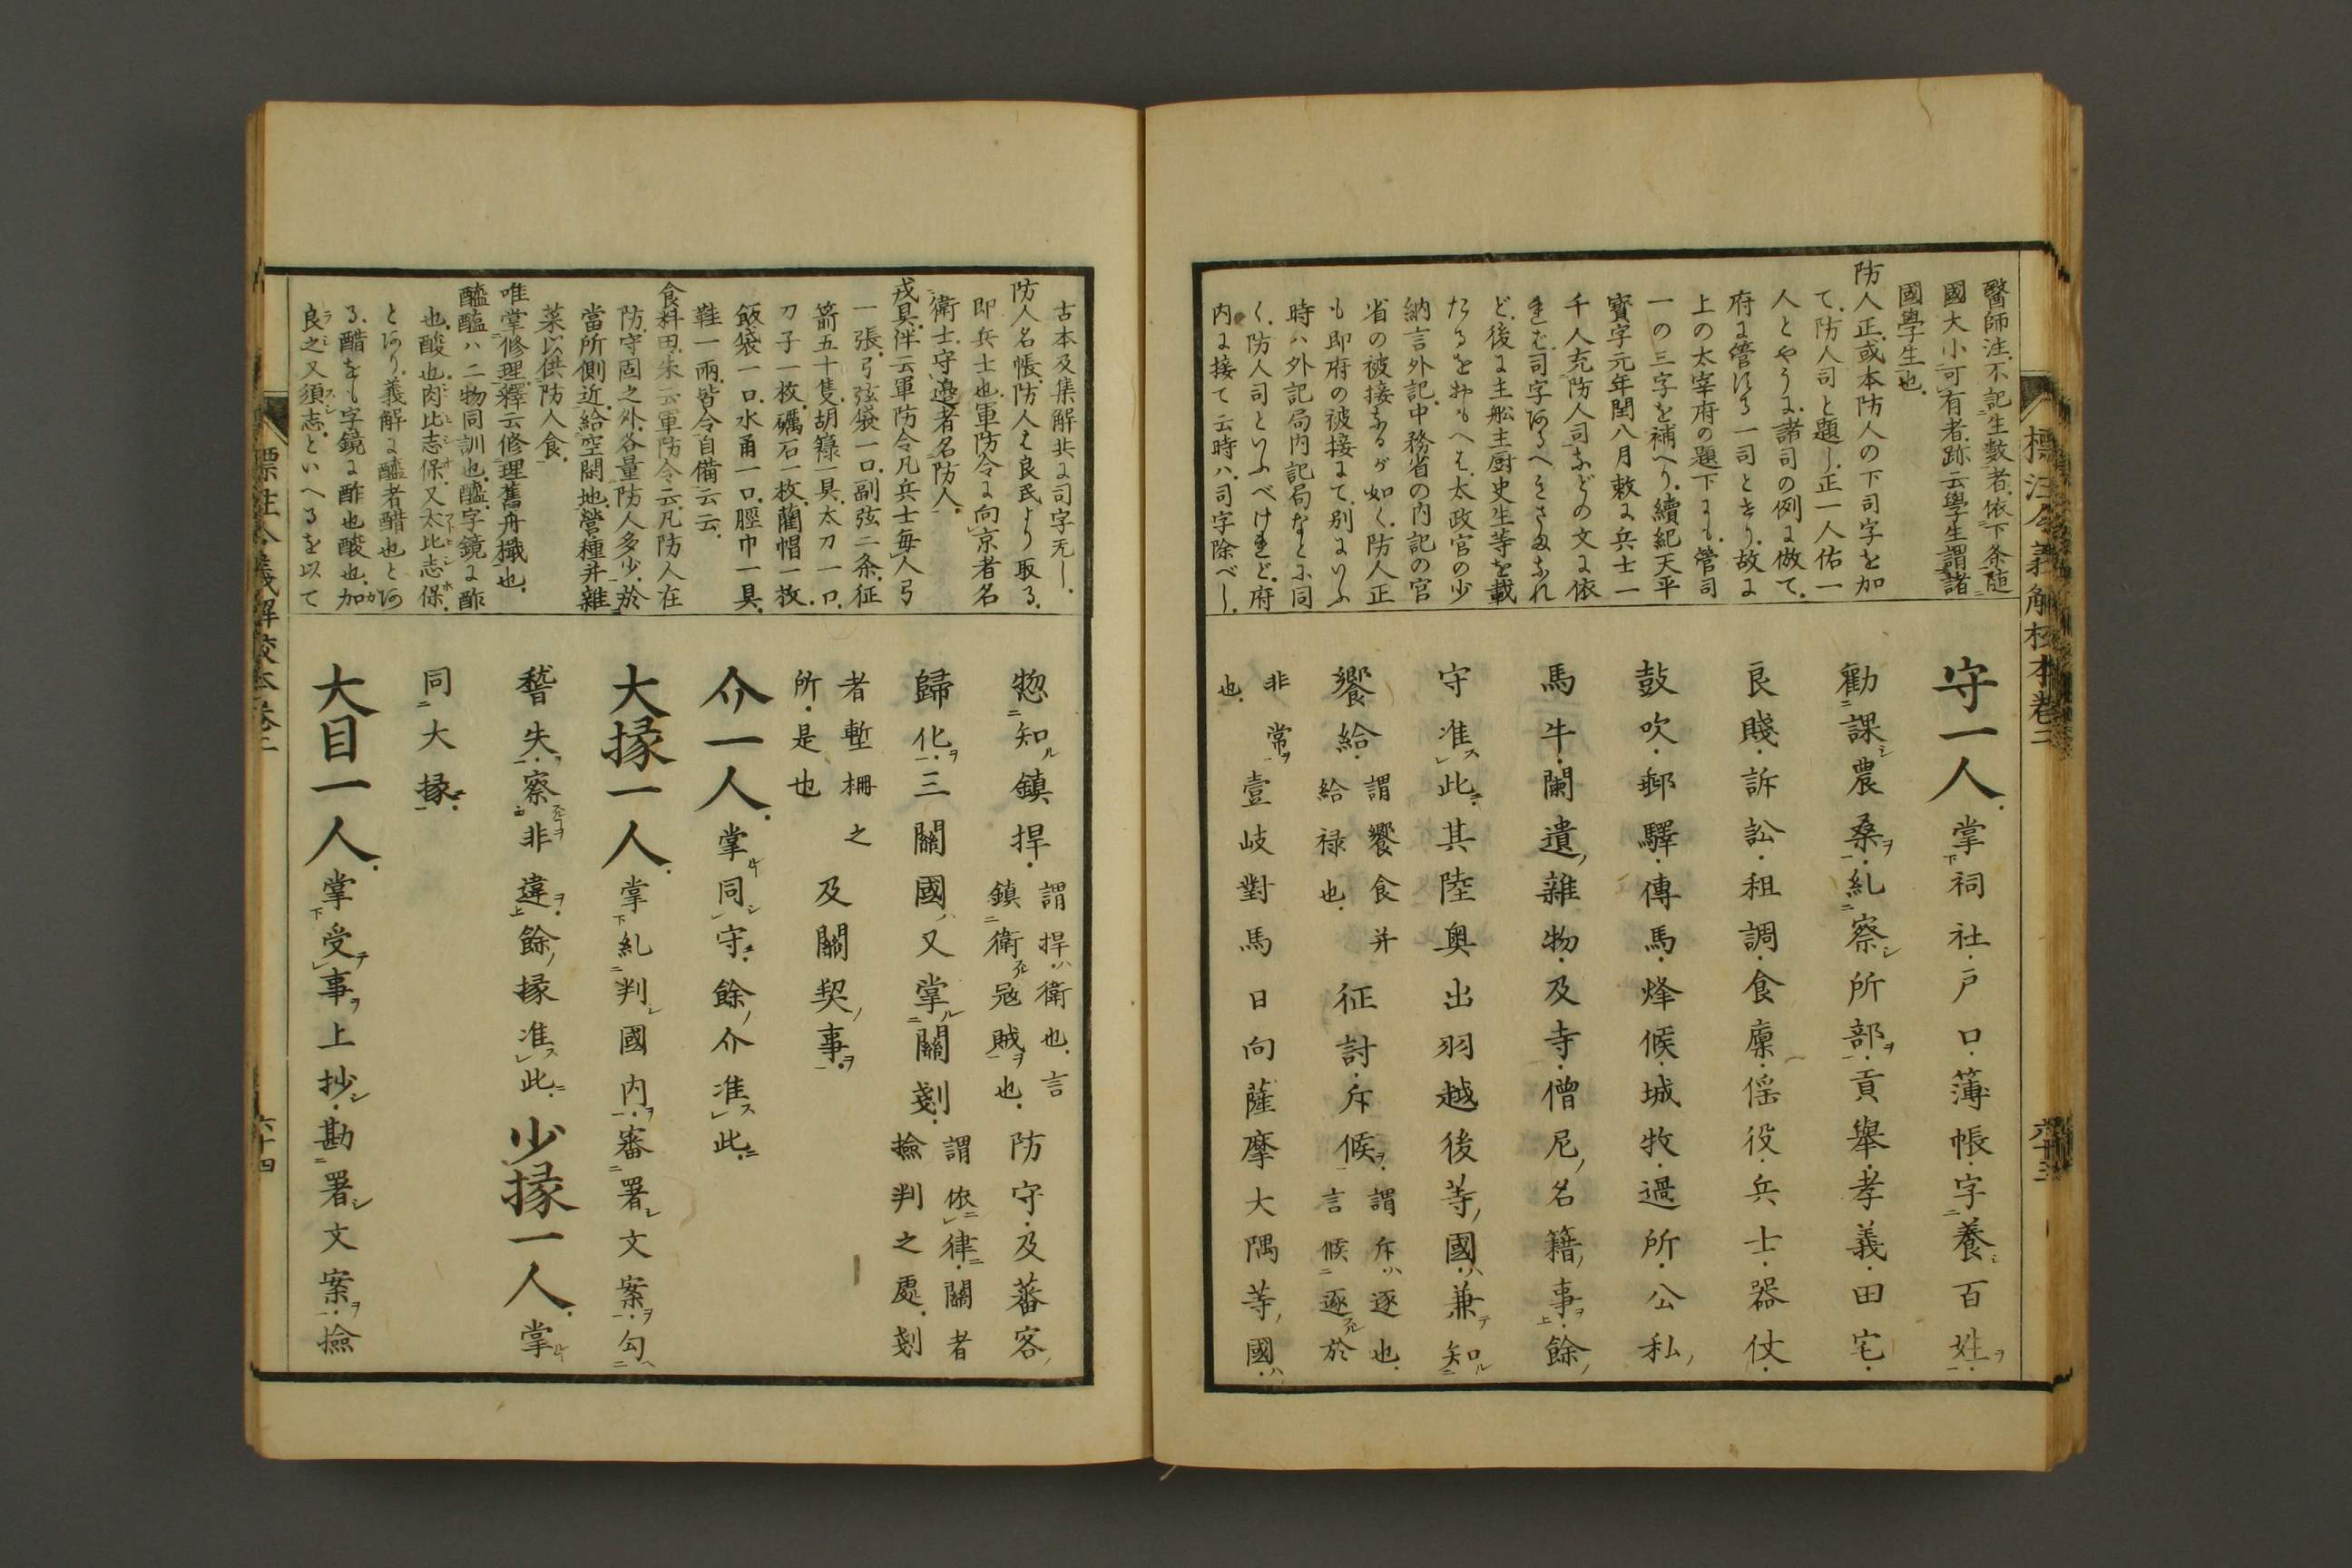 標注令義解校本卷二
六十三
醫師注、不記生數者、依下条、随
國大小、可有者、跡云、學生、謂諸
國學生也、
防人正、或本防人の下司字を加
て、防人司と題し、正一人佑一
人とやうに、諸司の例に倣て、
府に管する一司とせり、故に
上の太宰府の題下にも、管司
一の三字を補へり、續紀天平
寳字元年閏八月敕に兵士一
千人充防人司などの文に依
れば、司字あるべきさまなれ
ど、後に主舩主厨史生等を載
たるをおもへば、太政官の少
納言外記、中務省の内記の官
省の被接なるが如く、防人正
も即府の被接にて、別にいふ
時ハ外記局内記局などに同
く、防人司といふべけれど、府
内に接て云時ハ、司字除べし、
守一人掌祠社戸口薄帳字養百姓
勸課農桑糺察所部貢舉孝義田宅
良賤訴訟租調食廩徭役兵士器仗
鼓吹郵驛傳馬烽候城牧過所公私
馬牛闌遺雜物及寺僧尼名籍事餘
守准此其陸奥出羽越後等國兼知
饗給謂饗食并給禄也征討斥候謂斥逐也言候逐於
非常也壹岐對馬日向薩摩大隅等國
古本及集解共に司字无し、
防人名帳、防人は良民より取る、
即兵士也、軍防令に向京者名
衛士、守邊者名防人、
戎具、伴云軍防令凡兵士毎人弓
一張、弓弦袋一口、副弦二条、征
箭五十隻、胡籙一具、太刀一口、
刀子一枚、礪石一枚、藺帽一枚、
飯袋一口、水甬一口、脛巾一具、
鞋一兩、皆令自備云云、
食料田、朱云軍防令云、凡防人在
防、守固之外、各量防人多少、於
當所側近、給空閑地、營種并雜
菜、以供防人食、
唯掌修理、釋云修理舊舟檝也、
醯醢ハ二物同訓也、醯、字鏡に酢
也、酸也、肉比志保、又太比志保、
とあり、義解に醯者醋也とあ
る、醋をも字鏡に酢也酸也、加
良之又須志、といへるを以て
惣知鎮捍謂捍衛也言鎮衛冦賊也防守及蕃客
歸化三關國又掌關剗謂依律關者撿判之處剗
者塹柵之所是也及關契事
介一人掌同守餘介准此
大掾一人掌糺判國内審署文案勾
稽失察非違餘掾准此少掾一人掌
同大掾
大目一人掌受事上抄勘署文案撿
標注令義解校本卷二
六十四